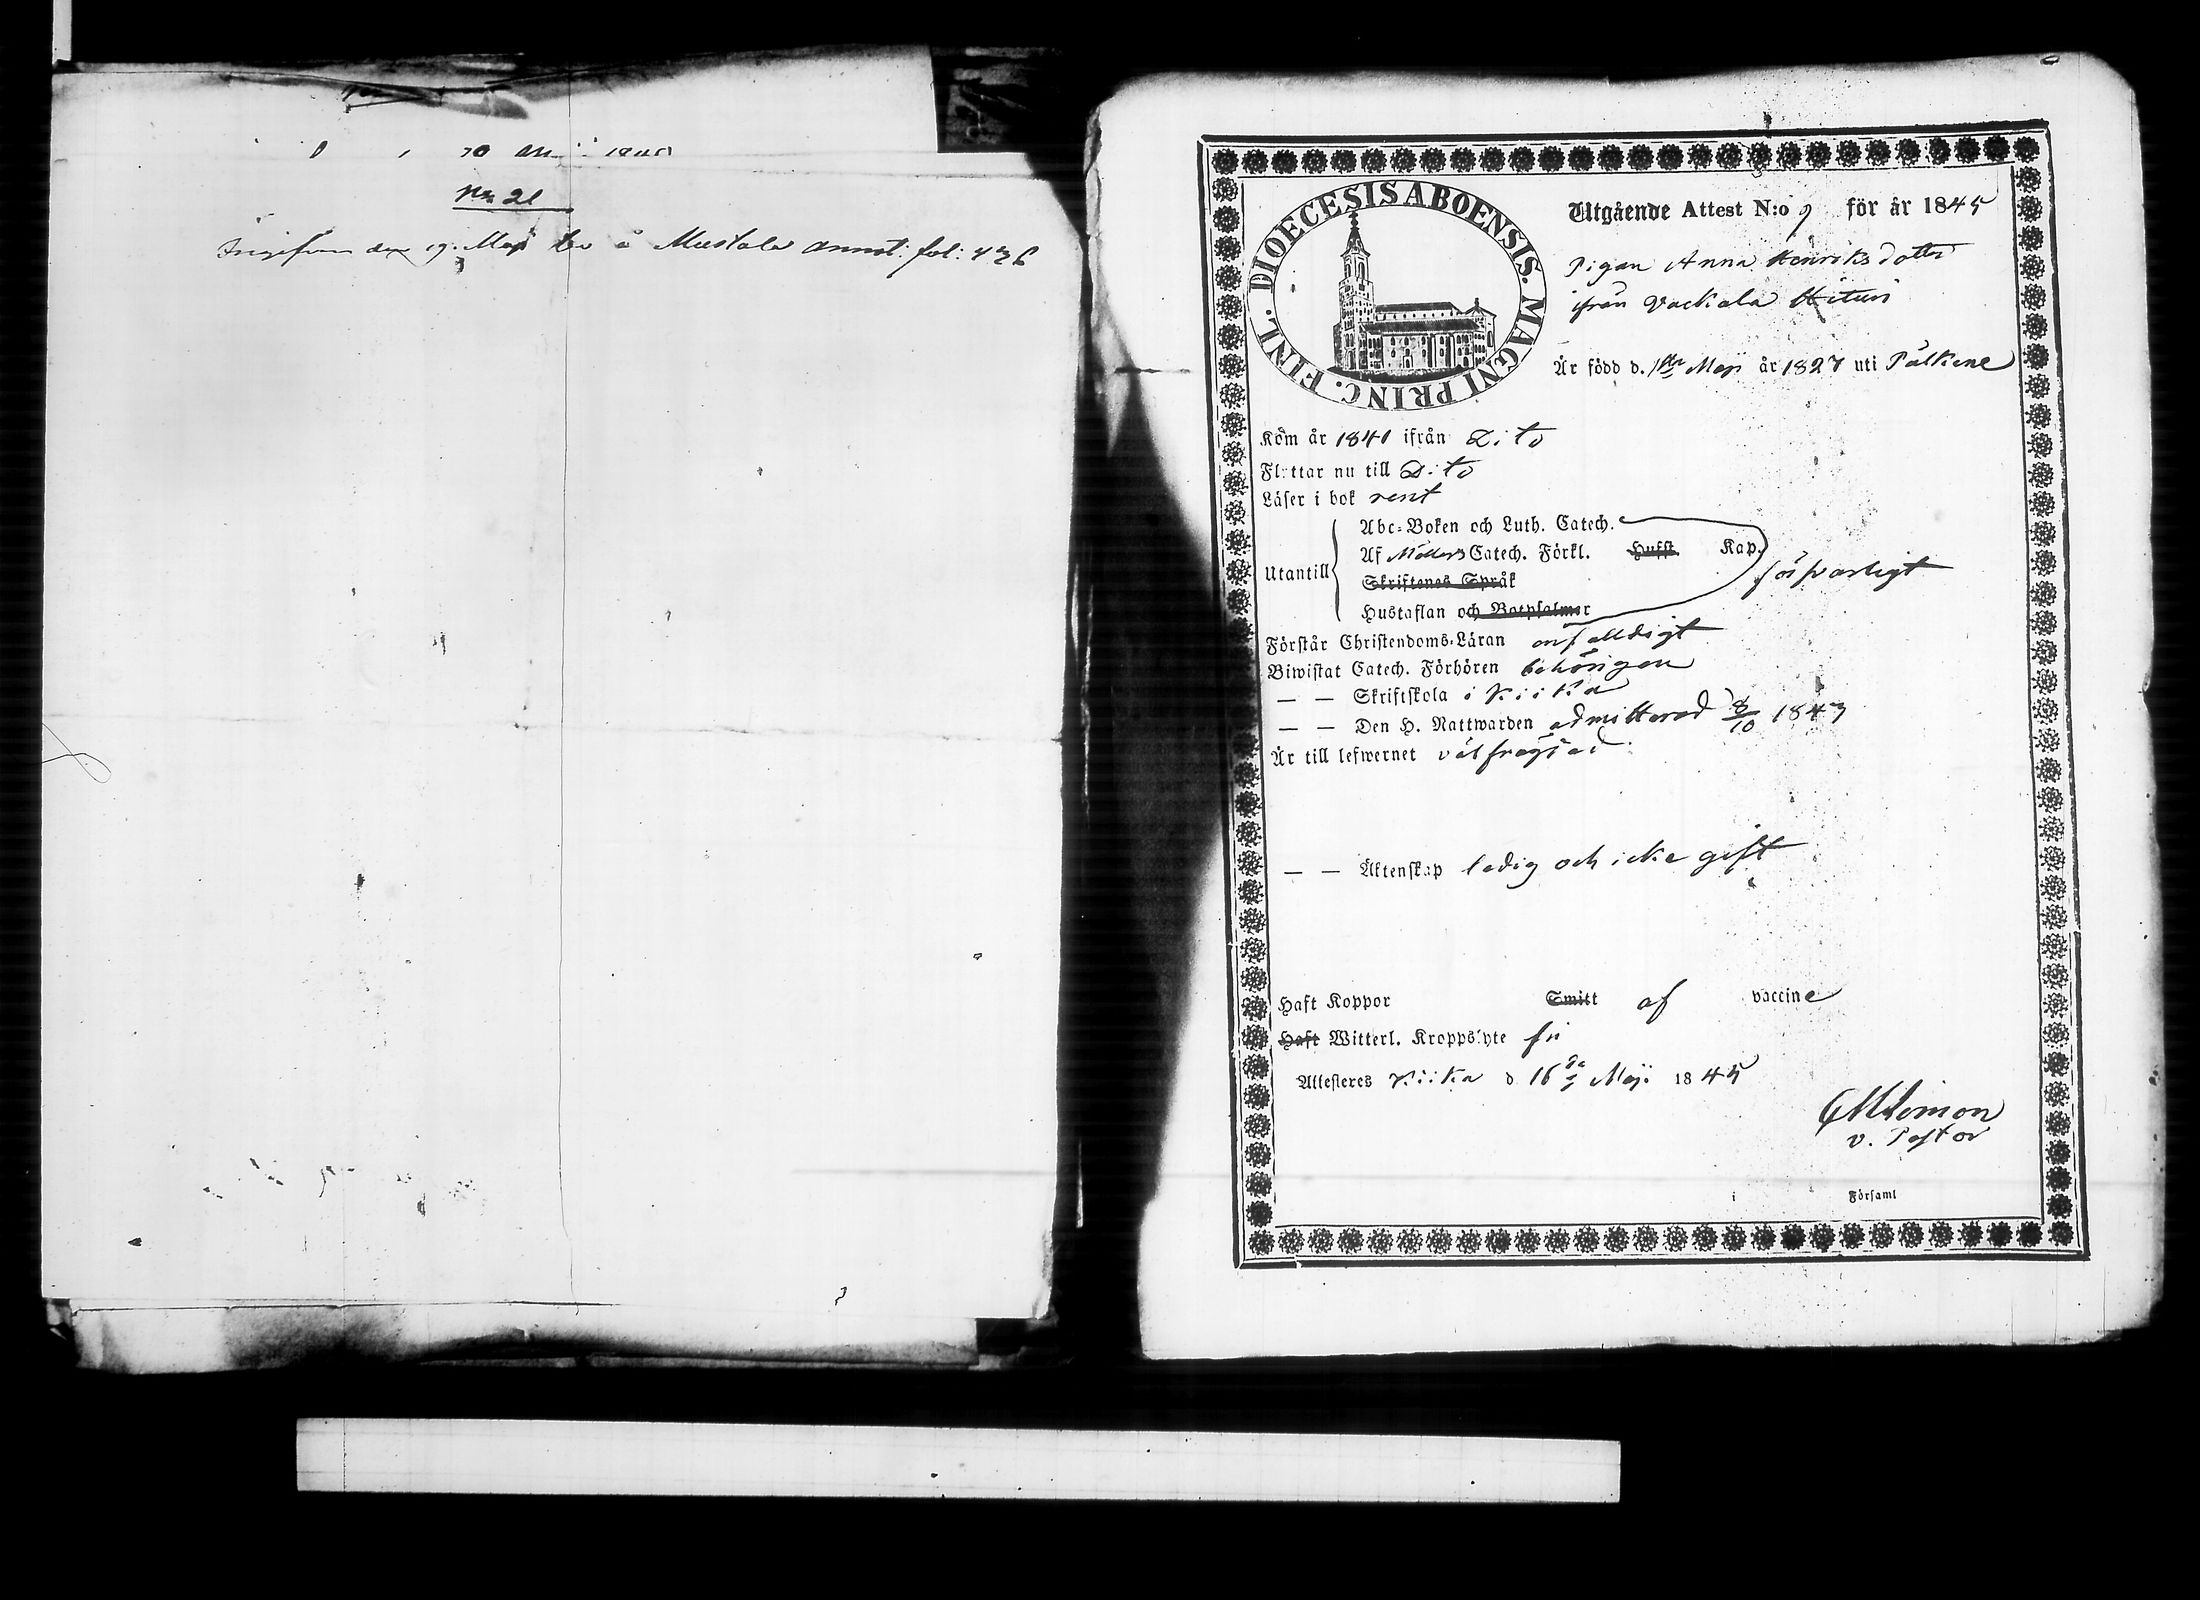 No 21
den 19 Maji å Mustala annot. fol: 436
DIOECESIS ABOENSIS. MAGNI PRINC. FINL.
Utgående Attest N:o 9 för år 1845
Pigan Anna Henriksdotter
ifrån Vackala
Är född d. 1sta Maji år 1827 uti Pälkene
Kom år 1841 ifrån Dito
Flyttar nu till Dito
Läser i bok rent
Utantill
Abc-Boken och Luth. Catech.
Af Möllers Catech. Förkl. Kap.
Skriftenes Språk
Hustaflan och Botpsalmer
försvarligt
Förstår Christendoms-Läran enfalldigt
Biwistat Catech. Förhören behörigen
— — Skriftskola i Kiika
— — Den H. Nattwarden admitterad 8/10 1843
Är till lefwernet välfrägdad
— — Äktenskap ledig och icke gift
Haft Koppor Smitt af vaccine
Haft Witterl. Kroppslyte fri
Attesteres Kiika d 16de Maji 1845
v. Pastor
i Församl